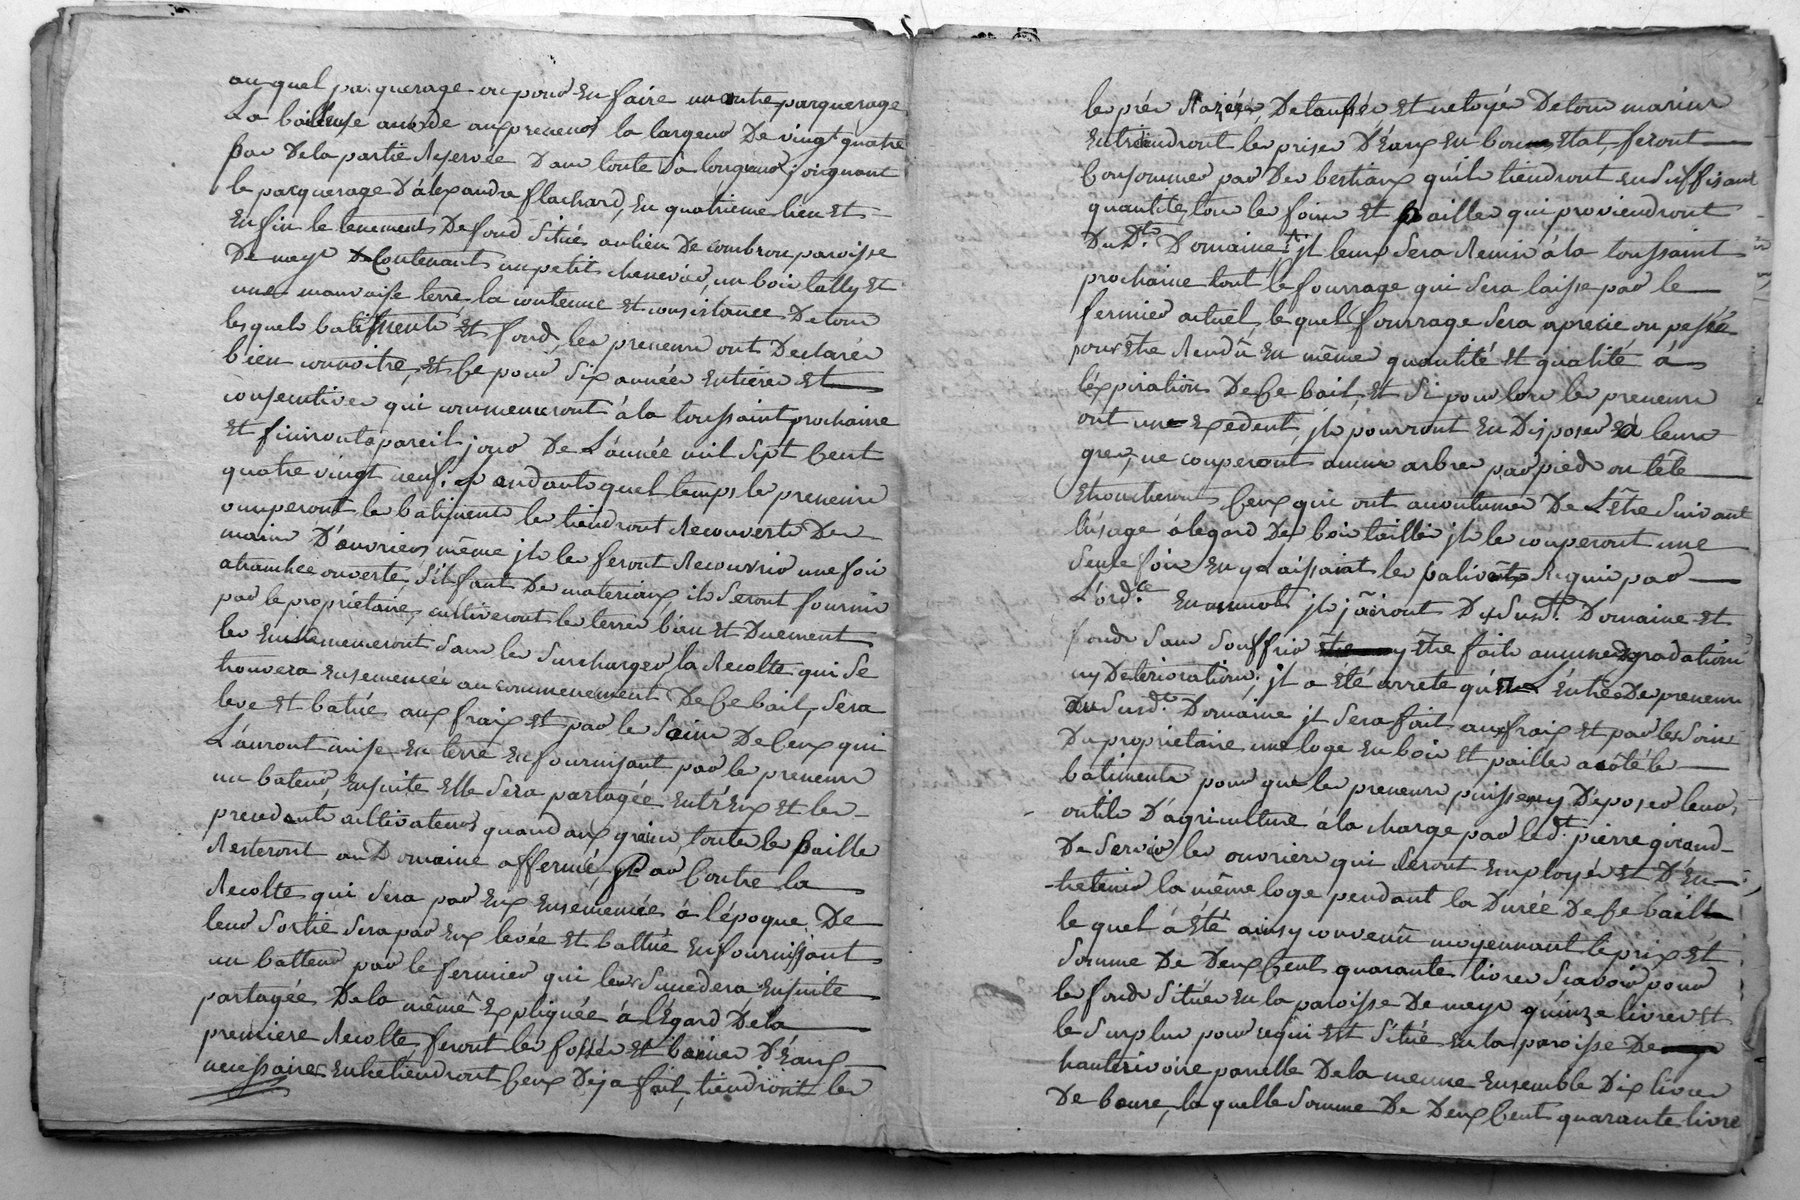 auquel parquerage on pour en faire un autre parquerage
La bailleuse accorde aux preneurs la largeur De vingt quatre
pas De la partie Reservée Dans toute Sa longueur joignant
le parquerage D'alexandre flachard, En quatrieme lieu Et
Enfin le tenement De fond Situé au lieu De combron paroisse
De meys Contenant un petit chenevier, un bois tally Et
une mauvaise terre la contenue et consistance De tous
lesquels batiments Et fond, les preneurs ont Declarés
bien connoitre, Et Ce pour Six années Entieres Et
consecutives qui commenceront à la toussaint prochaine
Et finiront a pareil jour De L'année mil Sept Cent
quatre vingt neuf. pendant lequel temps les preneurs
occuperont les batiments les tiendront Recouverts De
main D'ouvriers même jls les feront Recouvrir une fois
a tranchée ouverte, S'il faut De materiaux ils Seront fournis
par le propriétaire, cultiveront les terres bien Et Duement
les Ensemenceront Sans les Surcharger la Recolte qui Se
trouvera Ensemencée au commencement De Ce bail, Sera
levé Et batue aux fraix Et par le Soin De Ceux qui
L'auront mise En terre En fournissant par les preneurs
un bateur, Ensuite Elle Sera partagée Entr'Eux Et les
precedents cultivateurs quand aux grains, toutes les pailles
Resteront au Domaine affermé, Par Contre la
Recolte qui Sera par Eux Ensemencée à l'époque De
leur Sortie Sera par Eux levée Et battue En fournissant
un batteur par le fermier qui leur Succedera Ensuite
partagée De la même Expliquée à l'Egard De la
premiere Recolte feront les fossés Et baies D'Eaux
necessaires Entretiendront Ceux Deja fait, tiendront les
les prés Razées, Detaupés Et netoyés De tous marins
Entretiendront les prises D'Eaux En bon Etat feront
Consommer par Des bestiaux qu'ils tiendront En Suffisant
quantité, tous les foins Et pailles qui proviendront
Du Dt. Domaine, jl leur Sera Remis à la toussaint
prochaine tout le fourrage qui Sera laissé par le
fermier actuel, lequel fourrage Sera aprecié ou pessée
pour Etre Rendû En même quantité Et qualité à
l'éxpiration De Ce bail, Et Si pour lors les preneurs
ont une Excedent, jls pourront En Disposer à leurs
grez, ne couperont aucuns arbres par pied ou tête
Ebrancheront Ceux qui ont accoutumés De L'Etre Suivant
l'usage à l'égard Des bois taillis jls les couperont une
Seule fois En y Laissant les baliveaux Requis par
L'ord.ce En un mot jls jôuiront Du Susd.t Domaine Et
fonds Sans Souffrir y Etre fait aucunes Degradations
ny Deteriorations, jl a Eté arreté qu'a L'Entrée Des preneurs
au Susd.t Domaine jl Sera fait aux fraix Et par les Soins
Du propriétaire une loge En bois Et paille a côté le
batiments pour que les preneurs puissent y Déposer leurs
outils D'agriculture à la charge par led.t pierre girand
De Servir les ouvriers qui Seront Employés Et D'En-
-tretenir la même loge pendant la Durée De Ce bail
le quel à Eté ainsy convenû moyennant le prix Et
Somme De Deux Cent quarante livres Scavoir pour
les fonds Situés En la paroisse De meys quinze livres Et
le Surplus pour ce qui Est Situé En la paroisse De
hauterivoire parcelle De la meme Ensemble Dix livres
De beure, la quelle Somme De Deux Cent quarante livre